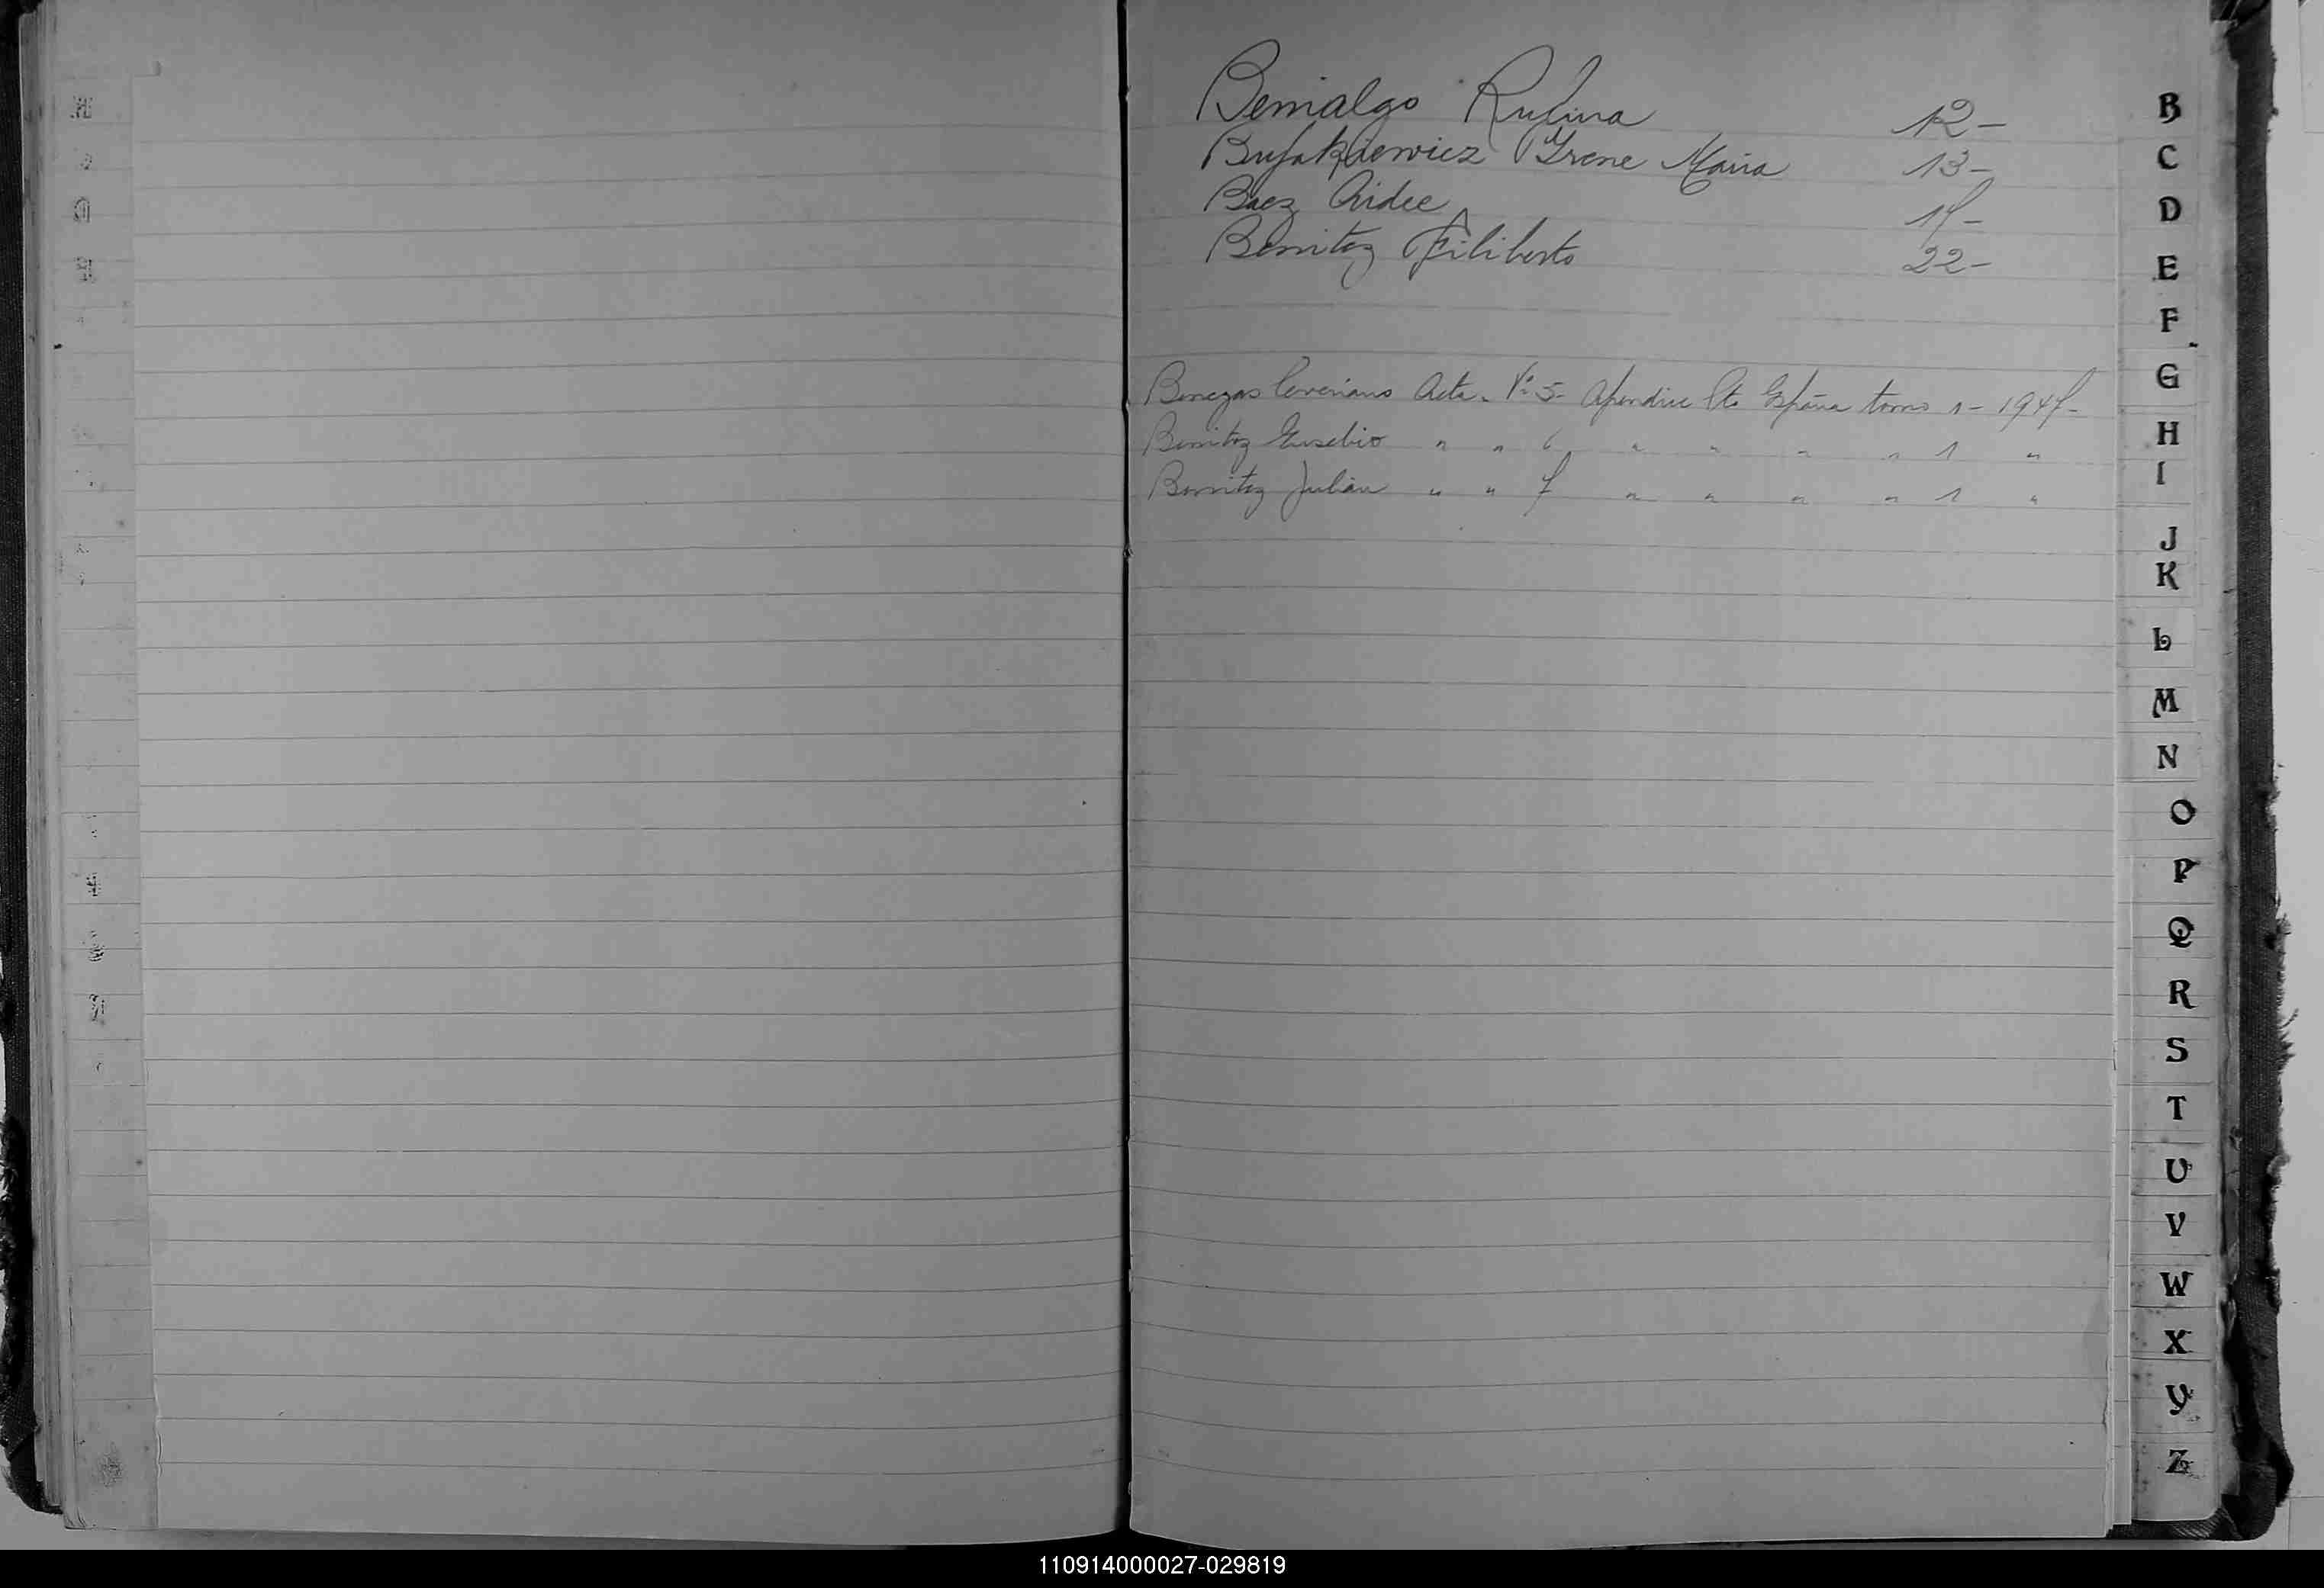 Benialgo Rufina 12-
Irene Maria 13-
Baez Aidee 17-
Benitez Filiberto 22-
Benegas Ceveriano Acta. Nº 5- Apendice Pto España tomo 1- 1947-
Benitez Eusebio " " 6 " " " " 1 "
Benitez Julián " " 7 " " " " 1 "
B
C
D
E
F
G
H
I
J
K
L
M
N
O
P
Q
R
S
T
U
V
W
X
Y
Z
110914000027-029819